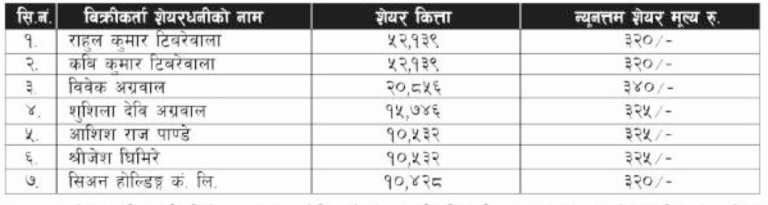 सि.नं. बिक्रीकर्ता शेयरधनीको नाम शेयर कित्ता न्यूनतम शेयर मूल्य रु.
१. राहुल कुमार टिबरेवाला ५२,१३९ ३२०/-
२. कवि कुमार टिबरेवाला ५२,१३९ ३२०/-
३. विवेक अग्रवाल २०,८५६ ३४०/-
४. शुशिला देवि अग्रवाल १५,७४६ ३२५/-
५. आशिश राज पाण्डे १०,५३२ ३२५/-
६. श्रीजेश घिमिरे १०,५३२ ३२५/-
७. सिअन होल्डिङ्ग कं. लि. १०,४२८ ३२०/-